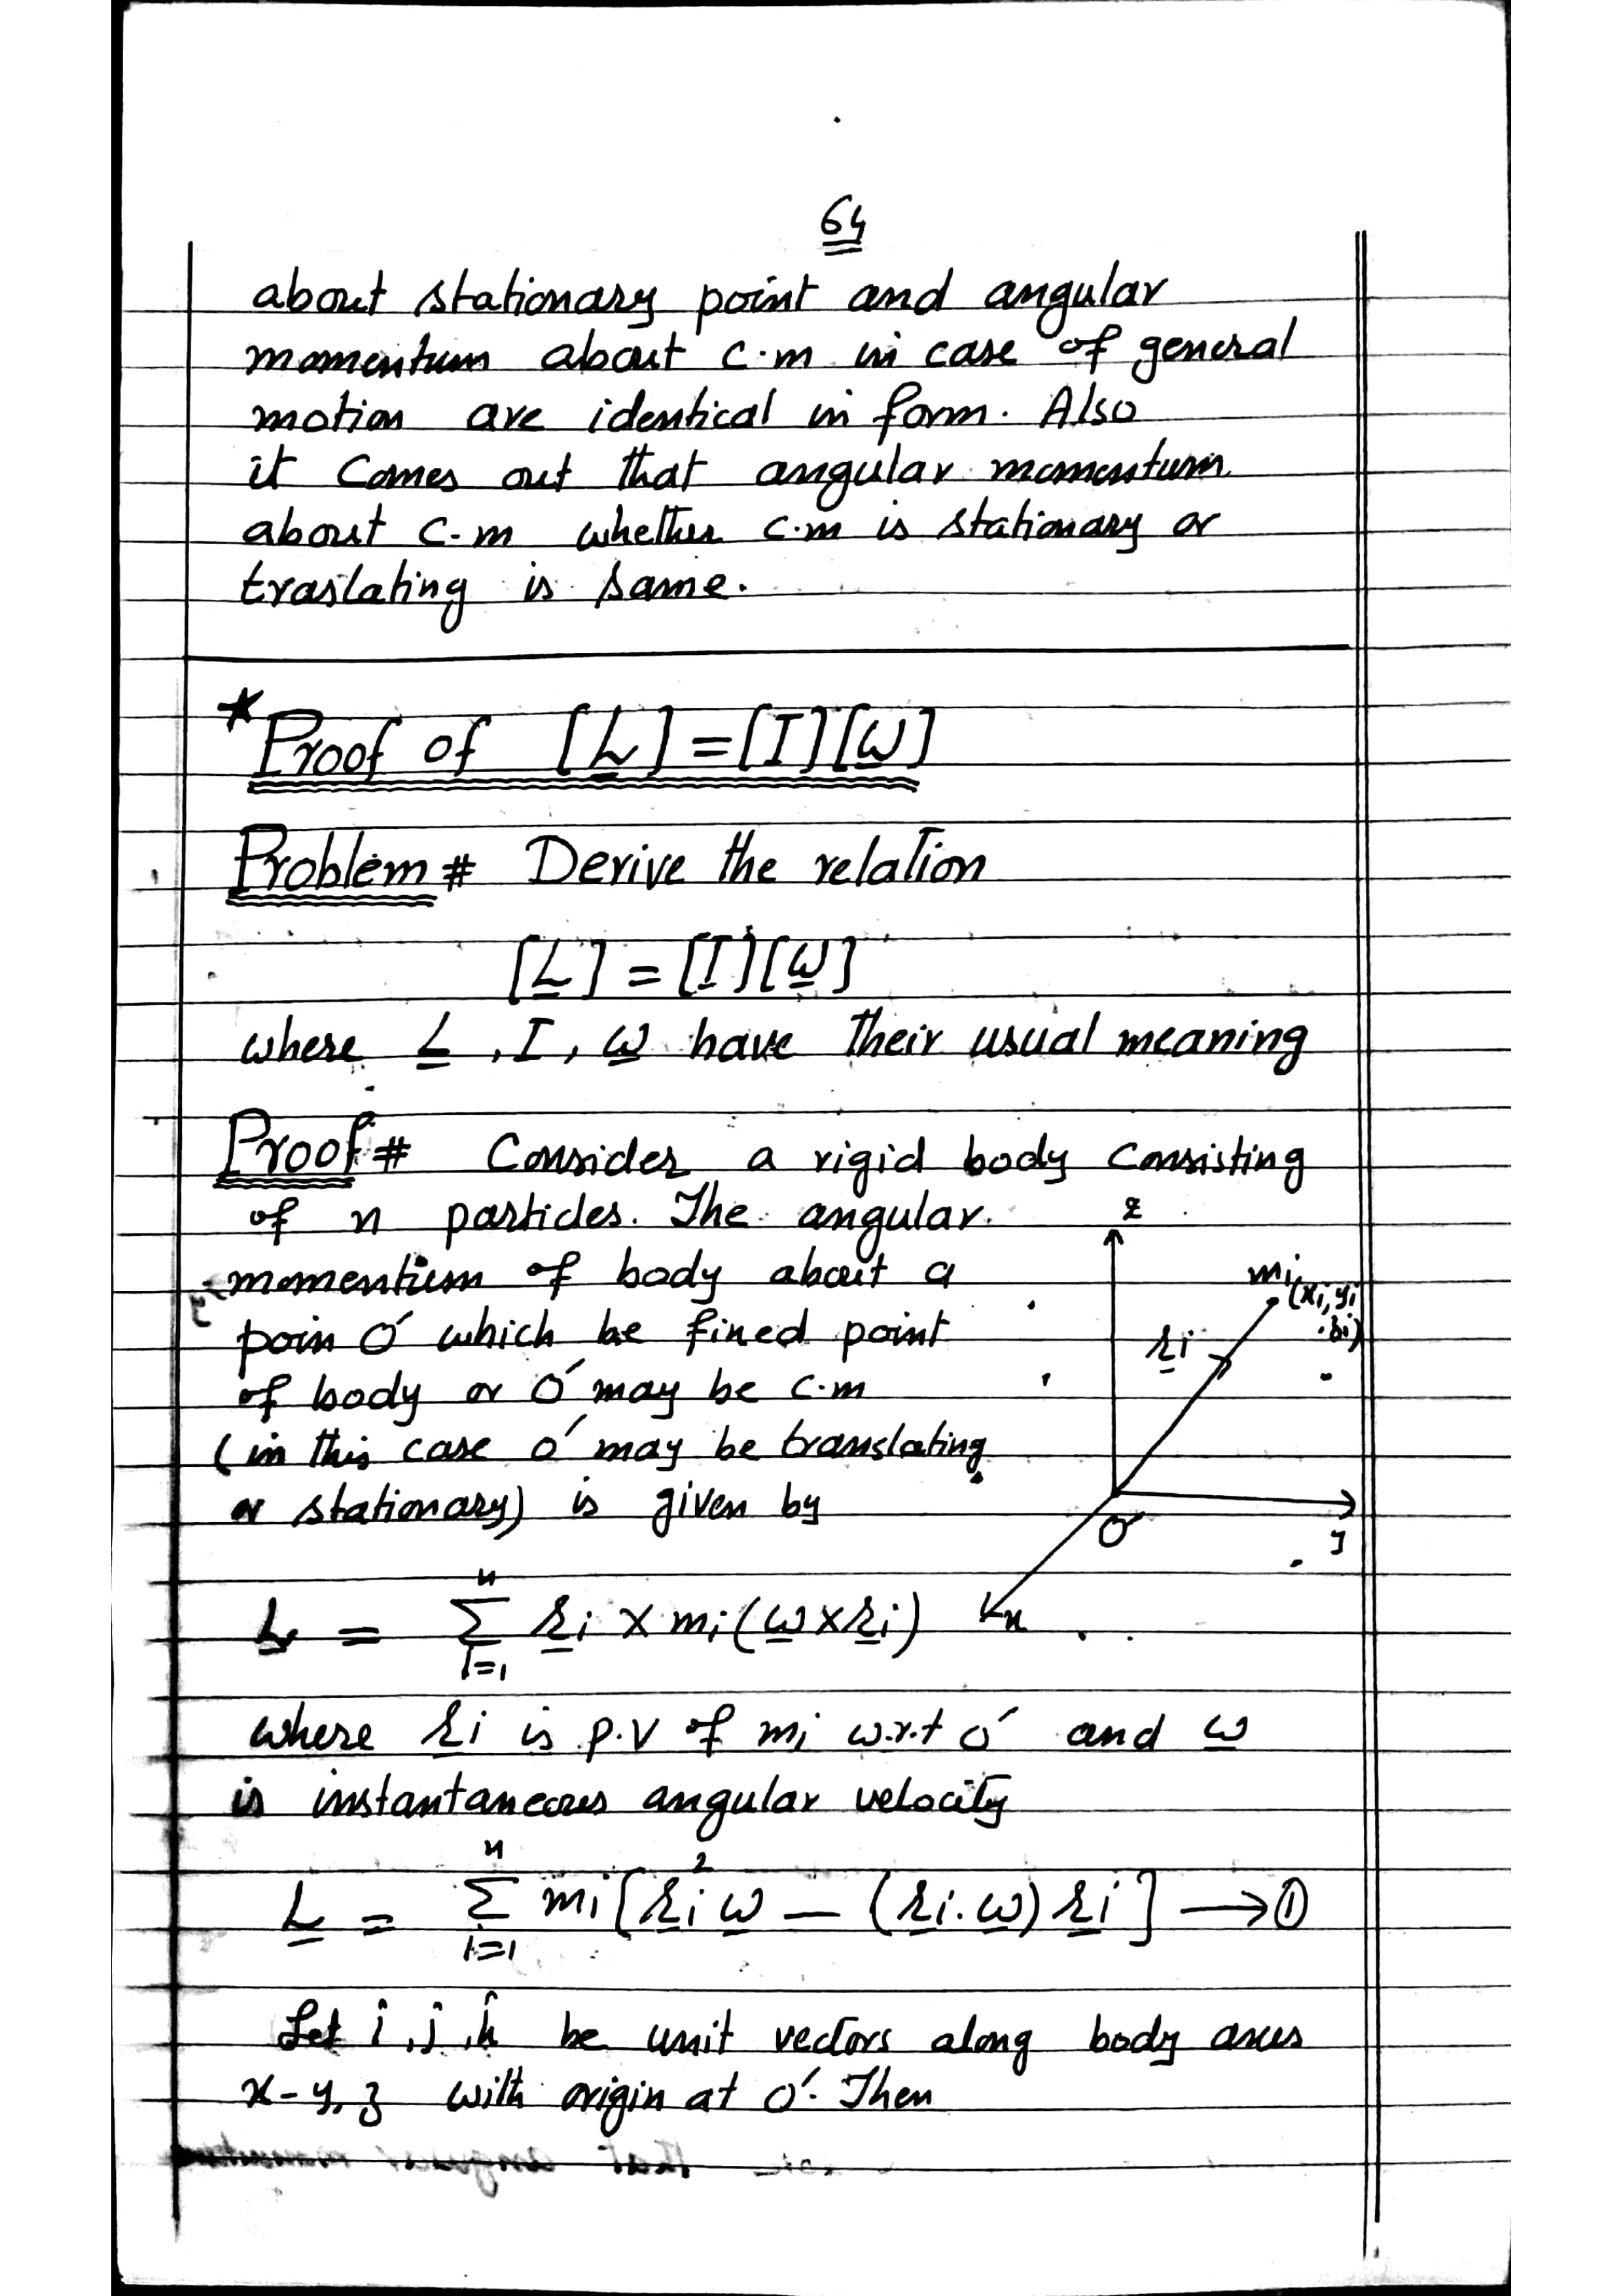 64
about stationary point and angular
momentum about c.m in case of general
motion are identical in form. Also
it comes out that angular momentum
about c.m whether c.m is stationary or
traslating is same.
*Proof of [L̲] = [I][ω̲]
Problem# Derive the relation
[L̲] = [I][ω̲]
where L̲, I, ω̲ have their usual meaning
Proof# Consider a rigid body consisting
of n particles. The angular
momentum of body about a
poin O′ which be fined point
of body or O′ may be c.m
(in this case O′ may be translating
or stationary) is given by
z
mi(xi, yi
zi)
r̲i
O′
y
x
L̲ = Σ_{i=1}^{n} r̲i × mi(ω̲ × r̲i)
where r̲i is p.v of mi w.r.t O′ and ω̲
is instantaneous angular velocity
L̲ = Σ_{i=1}^{n} mi[r̲i² ω̲ — (r̲i.ω̲) r̲i] → ①
Let î, ĵ, k̂ be unit vectors along body axes
x-y, z with origin at O′. Then